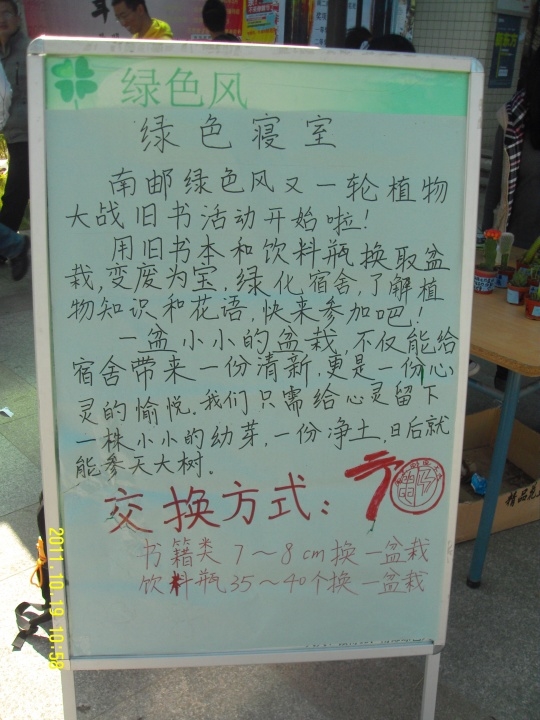 绿色风
绿色寝室
南邮绿色风又一轮植物
大战旧书活动开始啦！
用旧书本和饮料瓶换取盆
栽，变废为宝，绿化宿舍，了解植
物知识和花语，快来参加吧！
一盆小小的盆栽，不仅能给
宿舍带来一份清新，更是一份心
灵的愉悦。我们只需给心灵留下
一株小小的幼芽，一份净土，日后就
能参天大树。
交换方式：
书籍类 7～8cm换一盆栽
饮料瓶35～40个换一盆栽
2011.10.19 10:58